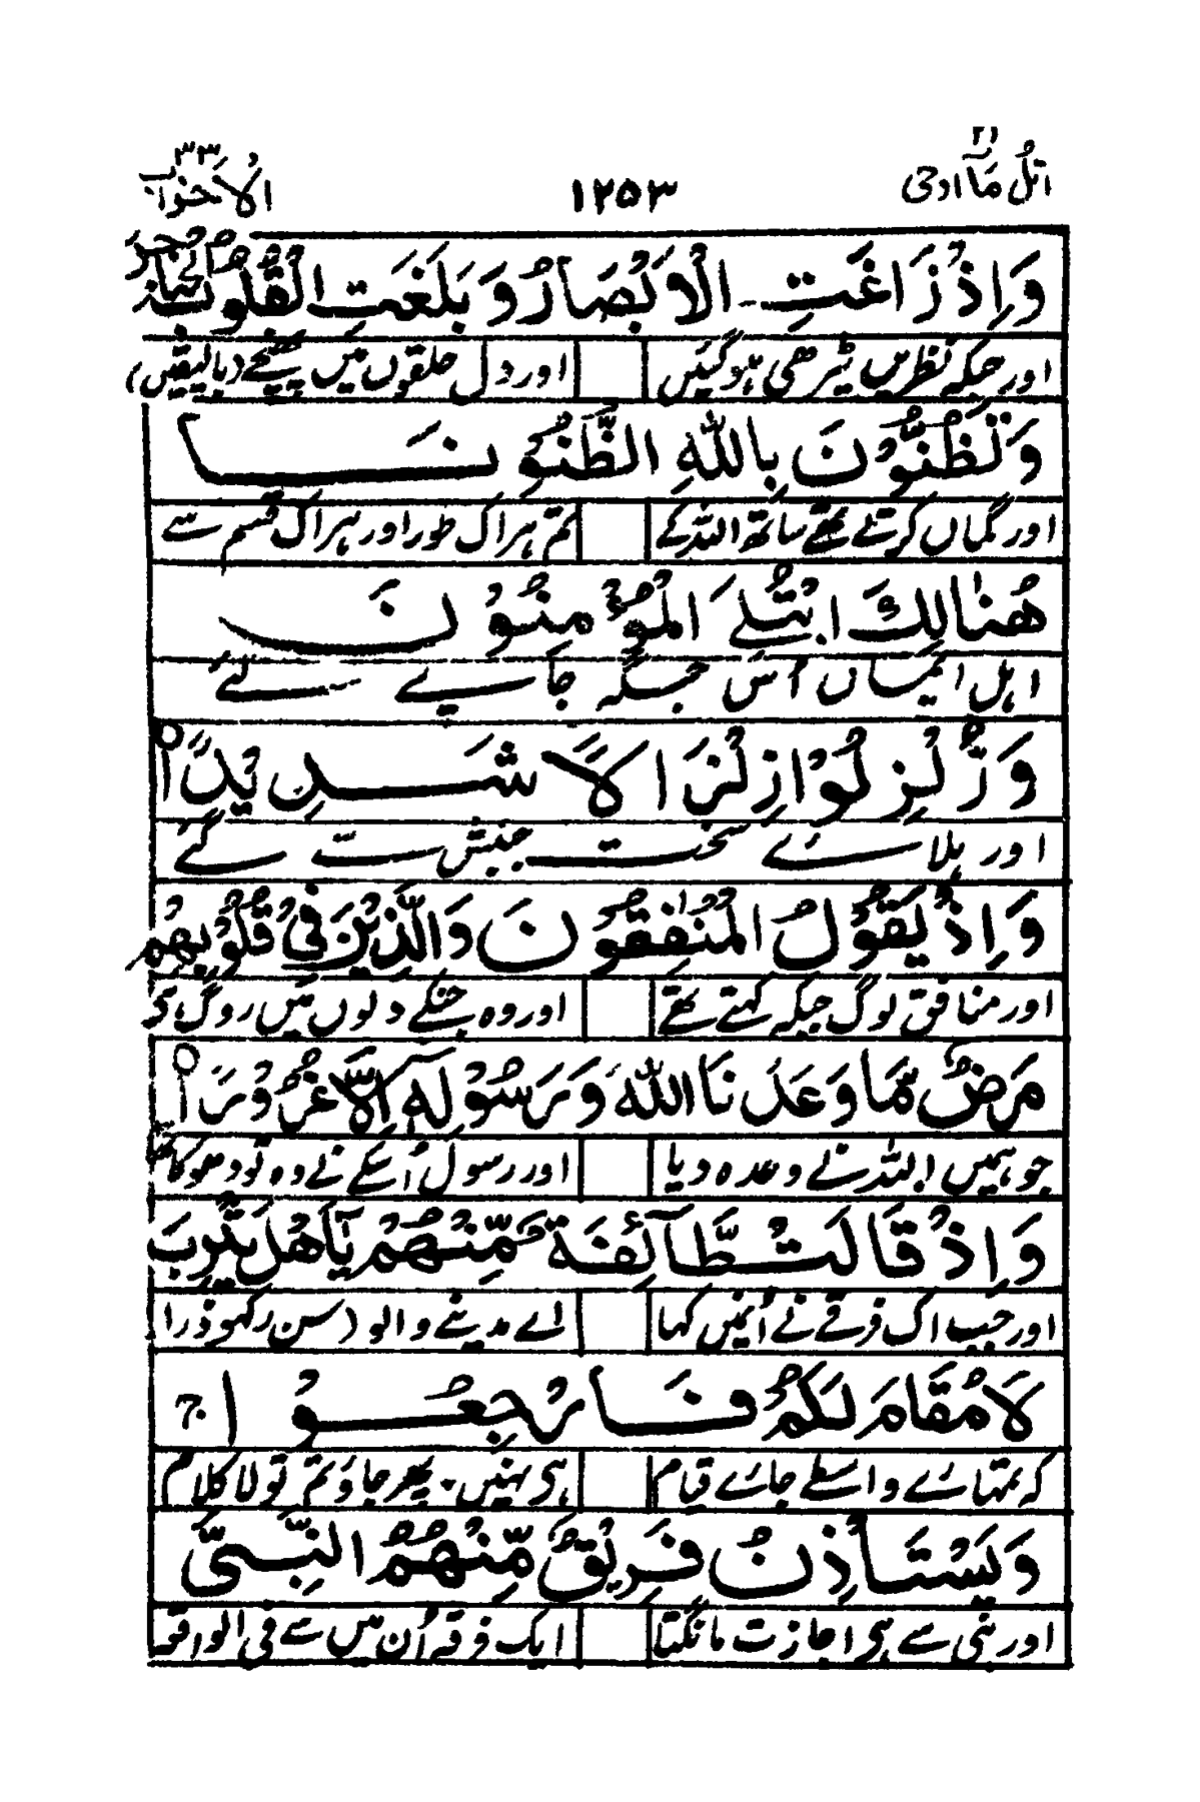 اتل ما اوحی ۲۱ ۱۲۵۳ الاحزاب ۳۳
وَاِذْ زَاغَتِ الْاَبْصَارُ وَبَلَغَتِ الْقُلُوْبُ الْحَنَاجِرَ
اور جبکہ نظریں ٹیڑھی ہوگئیں اور دل حلقوں میں پہنچے دبا لیقیں
وَتَظُنُّوْنَ بِاللّٰهِ الظُّنُوْنَا
اور گماں کرتے تھے ساتھ اللہ کے تم ہر اک طور اور ہر اک قسم سے
هُنَالِكَ ابْتُلِیَ الْمُؤْمِنُوْنَ
اہل ایماں اُس جگہ جانچے گئے
وَزُلْزِلُوْا زِلْزَالًا شَدِیْدًا
اور ہلائے سخت جنبش ست گئے
وَاِذْ یَقُوْلُ الْمُنٰفِقُوْنَ وَالَّذِیْنَ فِیْ قُلُوْبِهِمْ
اور منافق لوگ جبکہ کہتے تھے اور وہ جنکے دلوں میں روگ ہی
مَرَضٌ مَّا وَعَدَنَا اللّٰهُ وَرَسُوْلُهٗۤ اِلَّا غُرُوْرًا
جو ہمیں اللہ نے وعدہ دیا اور رسول اُسکے نے وہ تو دھوکا تھا
وَاِذْ قَالَتْ طَّآئِفَةٌ مِّنْهُمْ یٰۤاَهْلَ یَثْرِبَ
اور جب اک فرقے نے اُنمیں کہا اے مدینے والو (سن رکھو ذرا
لَا مُقَامَ لَكُمْ فَارْجِعُوْا ج
کہ تمہارے واسطے جائے قیام ہی نہیں۔ پھر جاؤ تم تو لا کلام
وَیَسْتَاْذِنُ فَرِیْقٌ مِّنْهُمُ النَّبِیَّ
اور نبی سے ہی اجازت مانگتا ایک فرقہ اُن میں سے فی الواقعہ